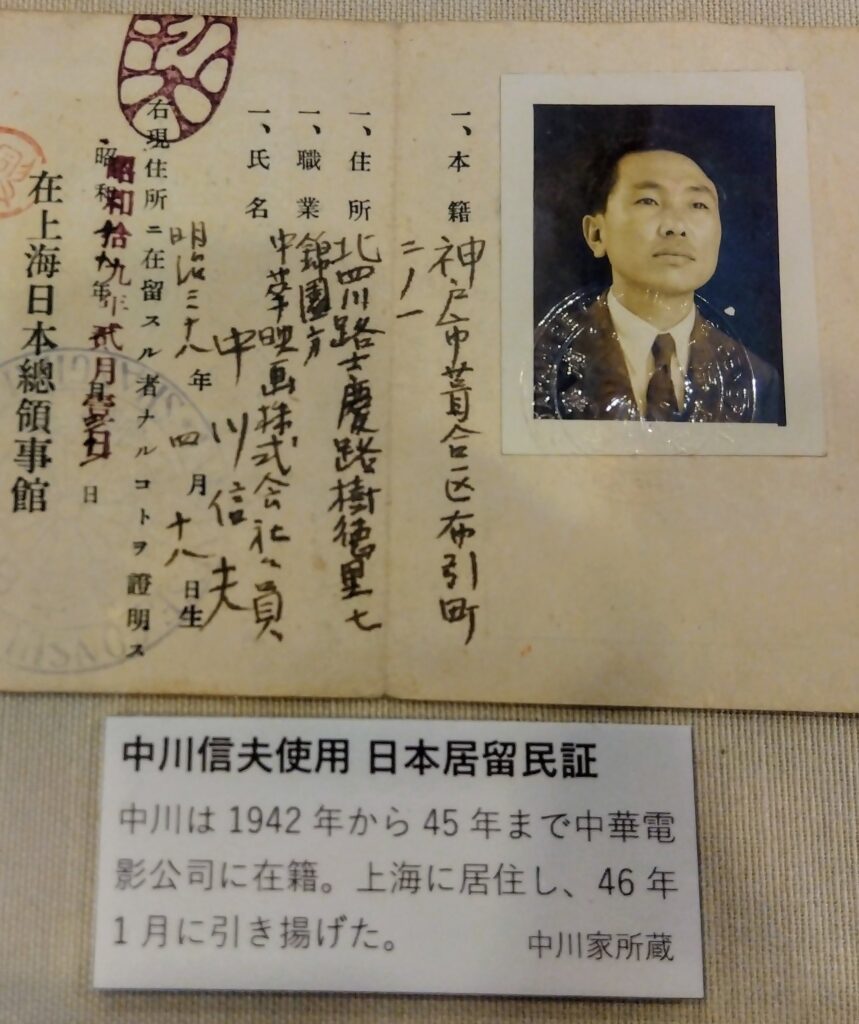 一、本籍 神戸市葺合区布引町
二ノ一
一、住所 北四川路士慶路樹徳里七
錦園方
一、職業 中華映画株式会社々員
一、氏名 中川信夫
明治三十八年四月十八日生
右現住所ニ在留スル者ナルコトヲ證明ス
昭和拾九年貳月日
在上海日本總領事館
中川信夫使用 日本居留民証
中川は1942年から45年まで中華電
影公司に在籍。上海に居住し、46年
1月に引き揚げた。
中川家所蔵